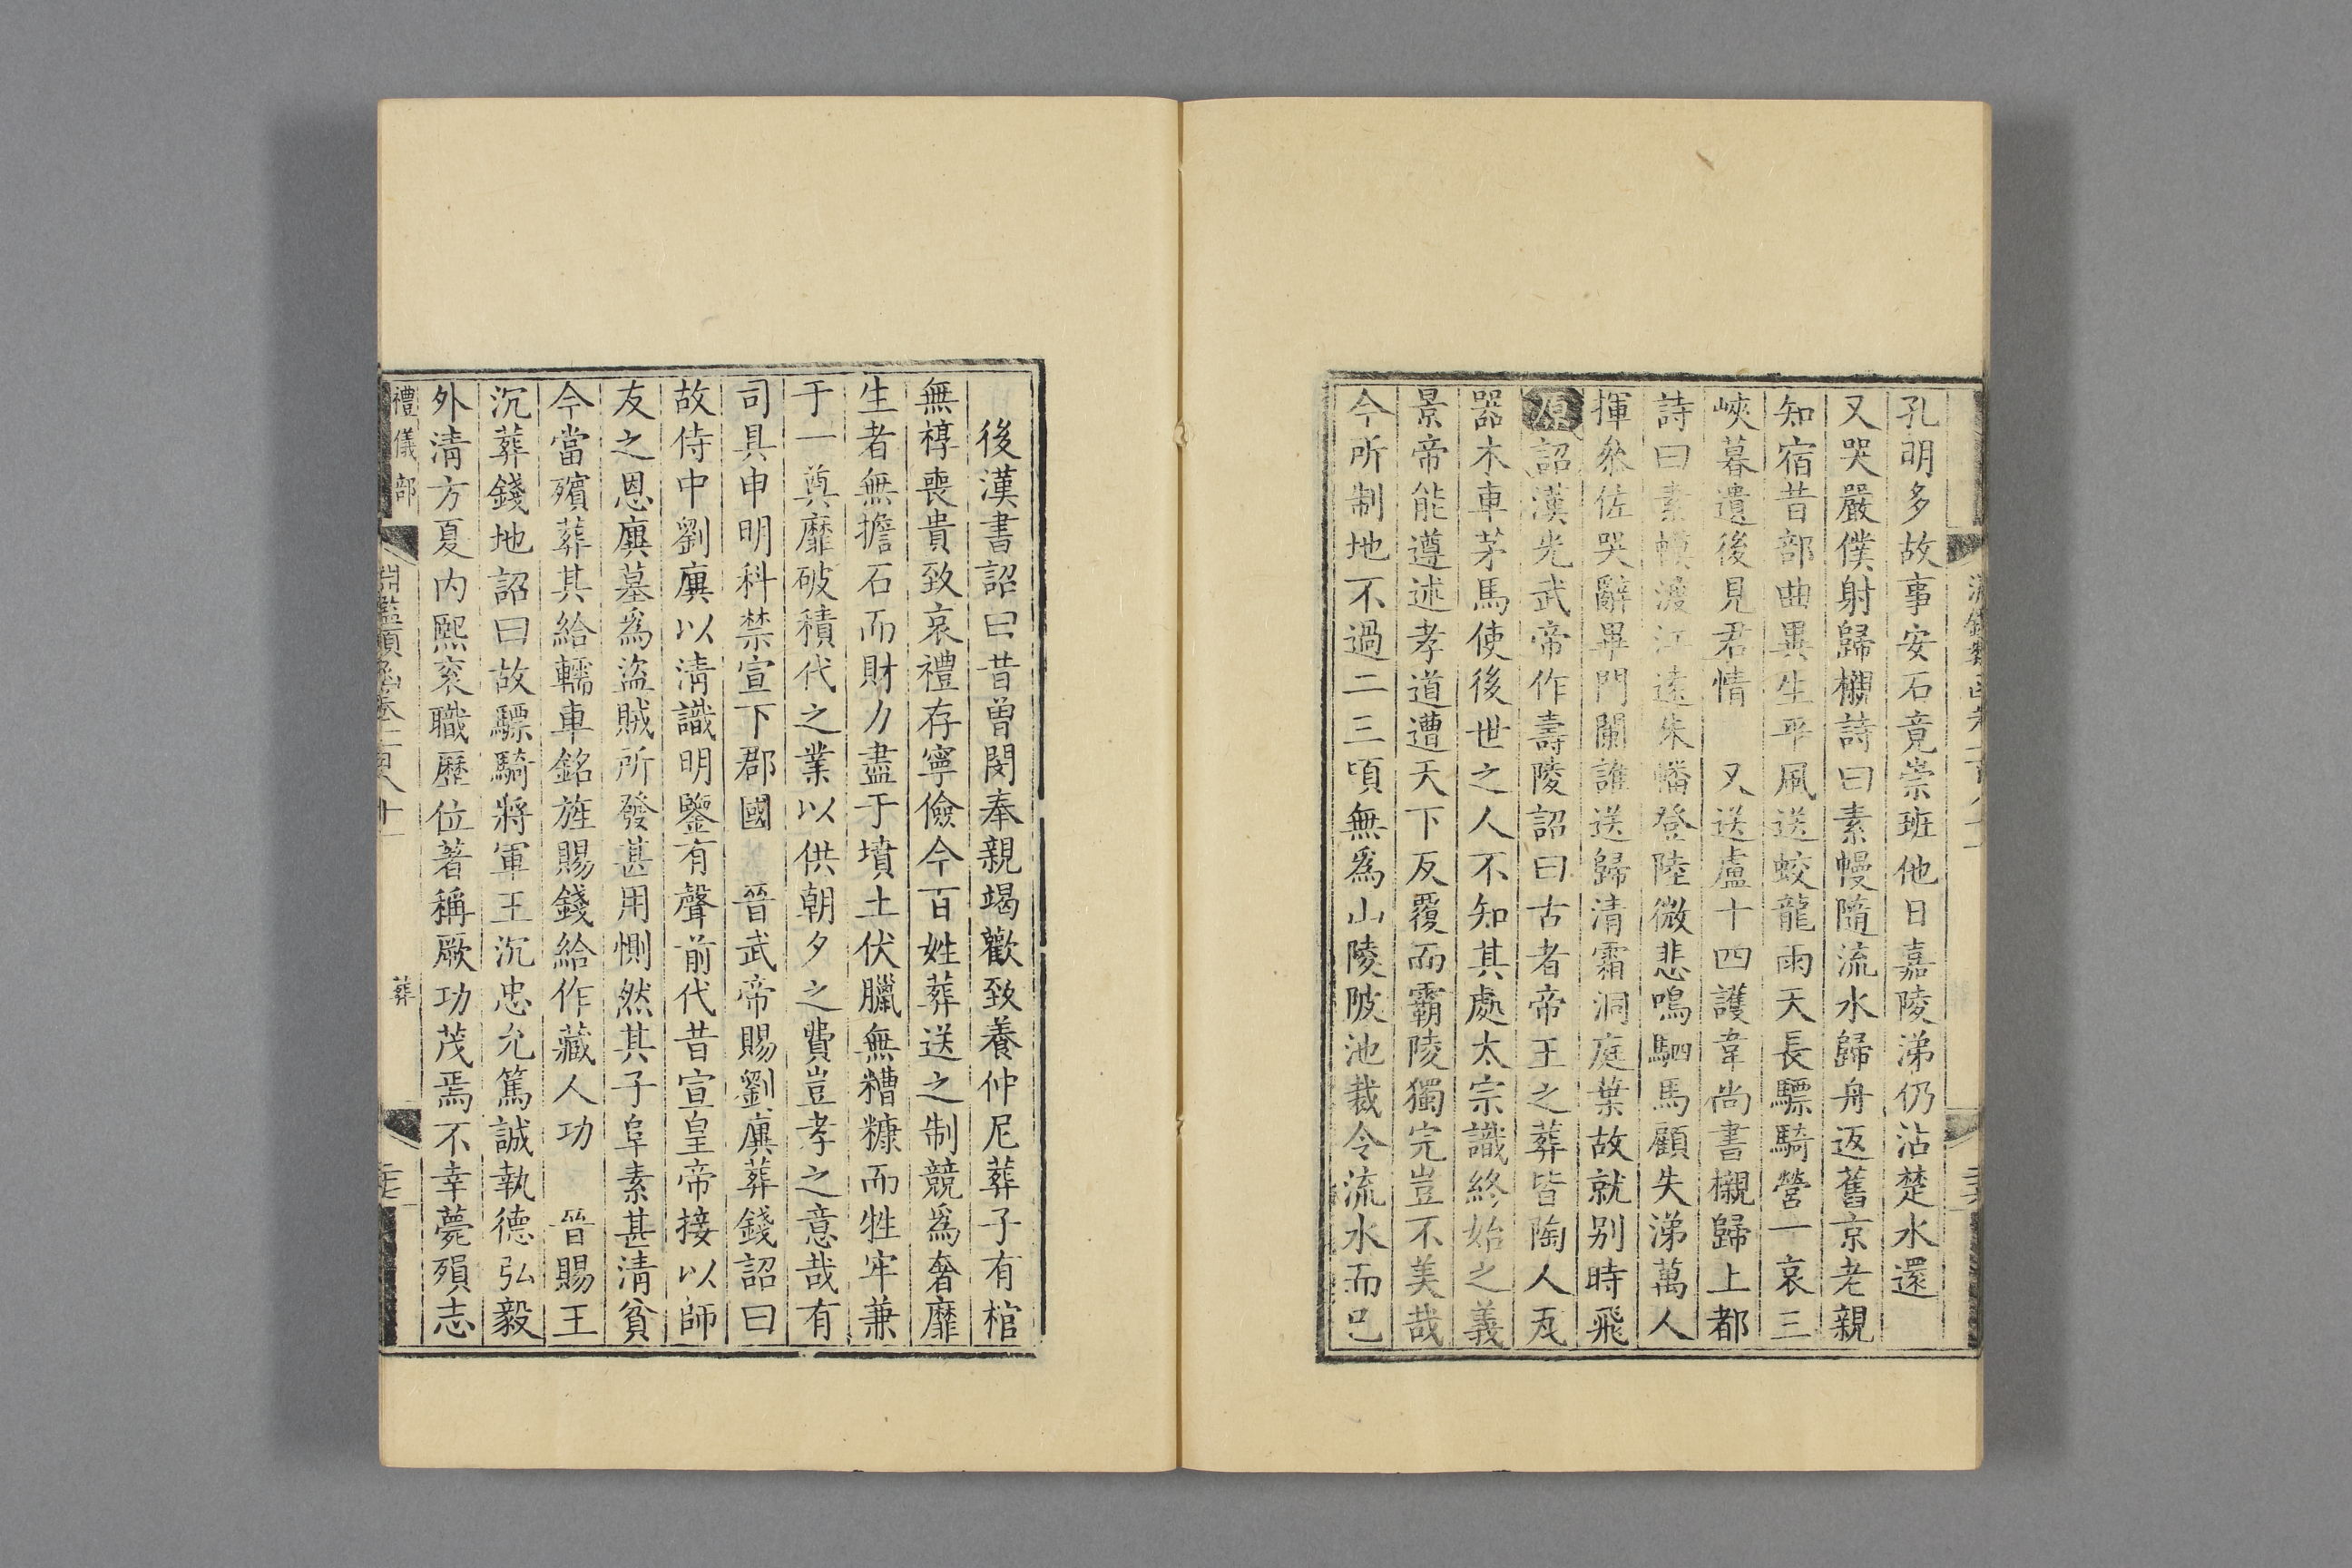 孔明多故事安石竟崇班他日嘉陵涕仍沾楚水還
又哭嚴僕射歸櫬詩曰素幔隨流水歸舟返舊京老親
知宿昔部曲異生平風送蛟龍雨天長驃騎營一哀三
峽暮遺後見君情　又送盧十四護韋尚書櫬歸上都
詩曰素幙渡江遠朱幡登陸微悲鳴駟馬顧失涕萬人
揮參佐哭辭畢門闌誰送歸清霜洞庭葉故就别時飛
原詔漢光武帝作壽陵詔曰古者帝王之葬皆陶人瓦
器木車茅馬使後世之人不知其處太宗識終始之義
景帝能遵述孝道遭天下反覆而霸陵獨完豈不美哉
今所制地不過二三頃無爲山陵陂池裁令流水而已
後漢書詔曰昔曾閔奉親竭歡致養仲尼葬子有棺
無椁喪貴致哀禮存寧儉今百姓葬送之制競爲奢靡
生者無擔石而財力盡于墳土伏臘無糟糠而牲牢兼
于一奠靡破積代之業以供朝夕之費豈孝之意哉有
司具申明科禁宣下郡國　晉武帝賜劉廙葬錢詔曰
故侍中劉廙以清識明鑒有聲前代昔宣皇帝接以師
友之恩廙墓爲盜賊所發甚用惻然其子阜素甚清貧
今當殯葬其給轜車銘旌賜錢給作藏人功　晉賜王
沉葬錢地詔曰故驃騎將軍王沉忠允篤誠執德弘毅
外清方夏内熙衮職歷位著稱厥功茂焉不幸薨殞志
禮儀部　淵鑑類函卷一百八十一　葬